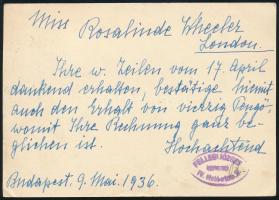 Miss Rosalinde Wheeler
London.
Ihre w. Zeilen vom 17. April
dankend erhalten, bestätige hiemit
auch den Erhalt von vierzig Pengö,
womit Ihre Rechnung ganz be-
glichen ist.
Hochachtend
Budapest, 9. Mai. 1936.